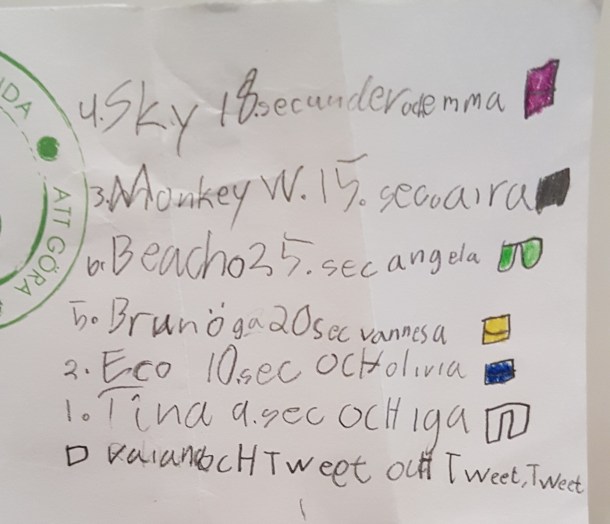 IDA
ATT GÖRA
4. Sky 18. secunder och emma
3. Monkey W. 15. sec o aira
6. Beacho 25. sec angela
5. Brunöga 20 sec vannesa
2. Eco 10. sec OCH olivia
1. Tina 9. sec OCH iga
OCH Tweet OCH Tweet, Tweet